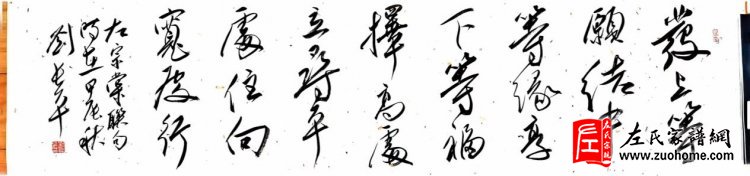 發上等
願結中
等緣享
下等福
擇高處
立尋平
處住向
寬處行
左宗棠聯句
時在甲辰秋
劉
左氏家譜網
www.zuohome.com